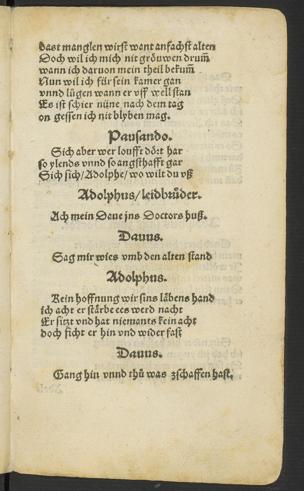 dast manglen wirst want anfachst alten
Doch wil ich mich nit gröuwen drum̄
wann ich daruon mein theil bekum̄
Nun wil ich für sein kamer gan
vnnd lůgen wann er vff well stan
Es ist schier nüne nach dem tag
on gessen ich nit blyben mag.
Pausando.
Sich aber wer loufft dört har
so ylends vnnd so angsthafft gar
Sich sich/Adolphe/wo wilt du vß
Adolphus/leidbrůder.
Ach mein Daue ins Doctors huß.
Dauus.
Sag mir wies vmb den alten stand
Adolphus.
Kein hoffnung wir sins läbens hand
ich acht er stärbe ees werd nacht
Er sitzt vnd hat niemants kein acht
doch sicht er hin vnd wider fast
Dauus.
Gang hin vnnd thů was zschaffen hast.